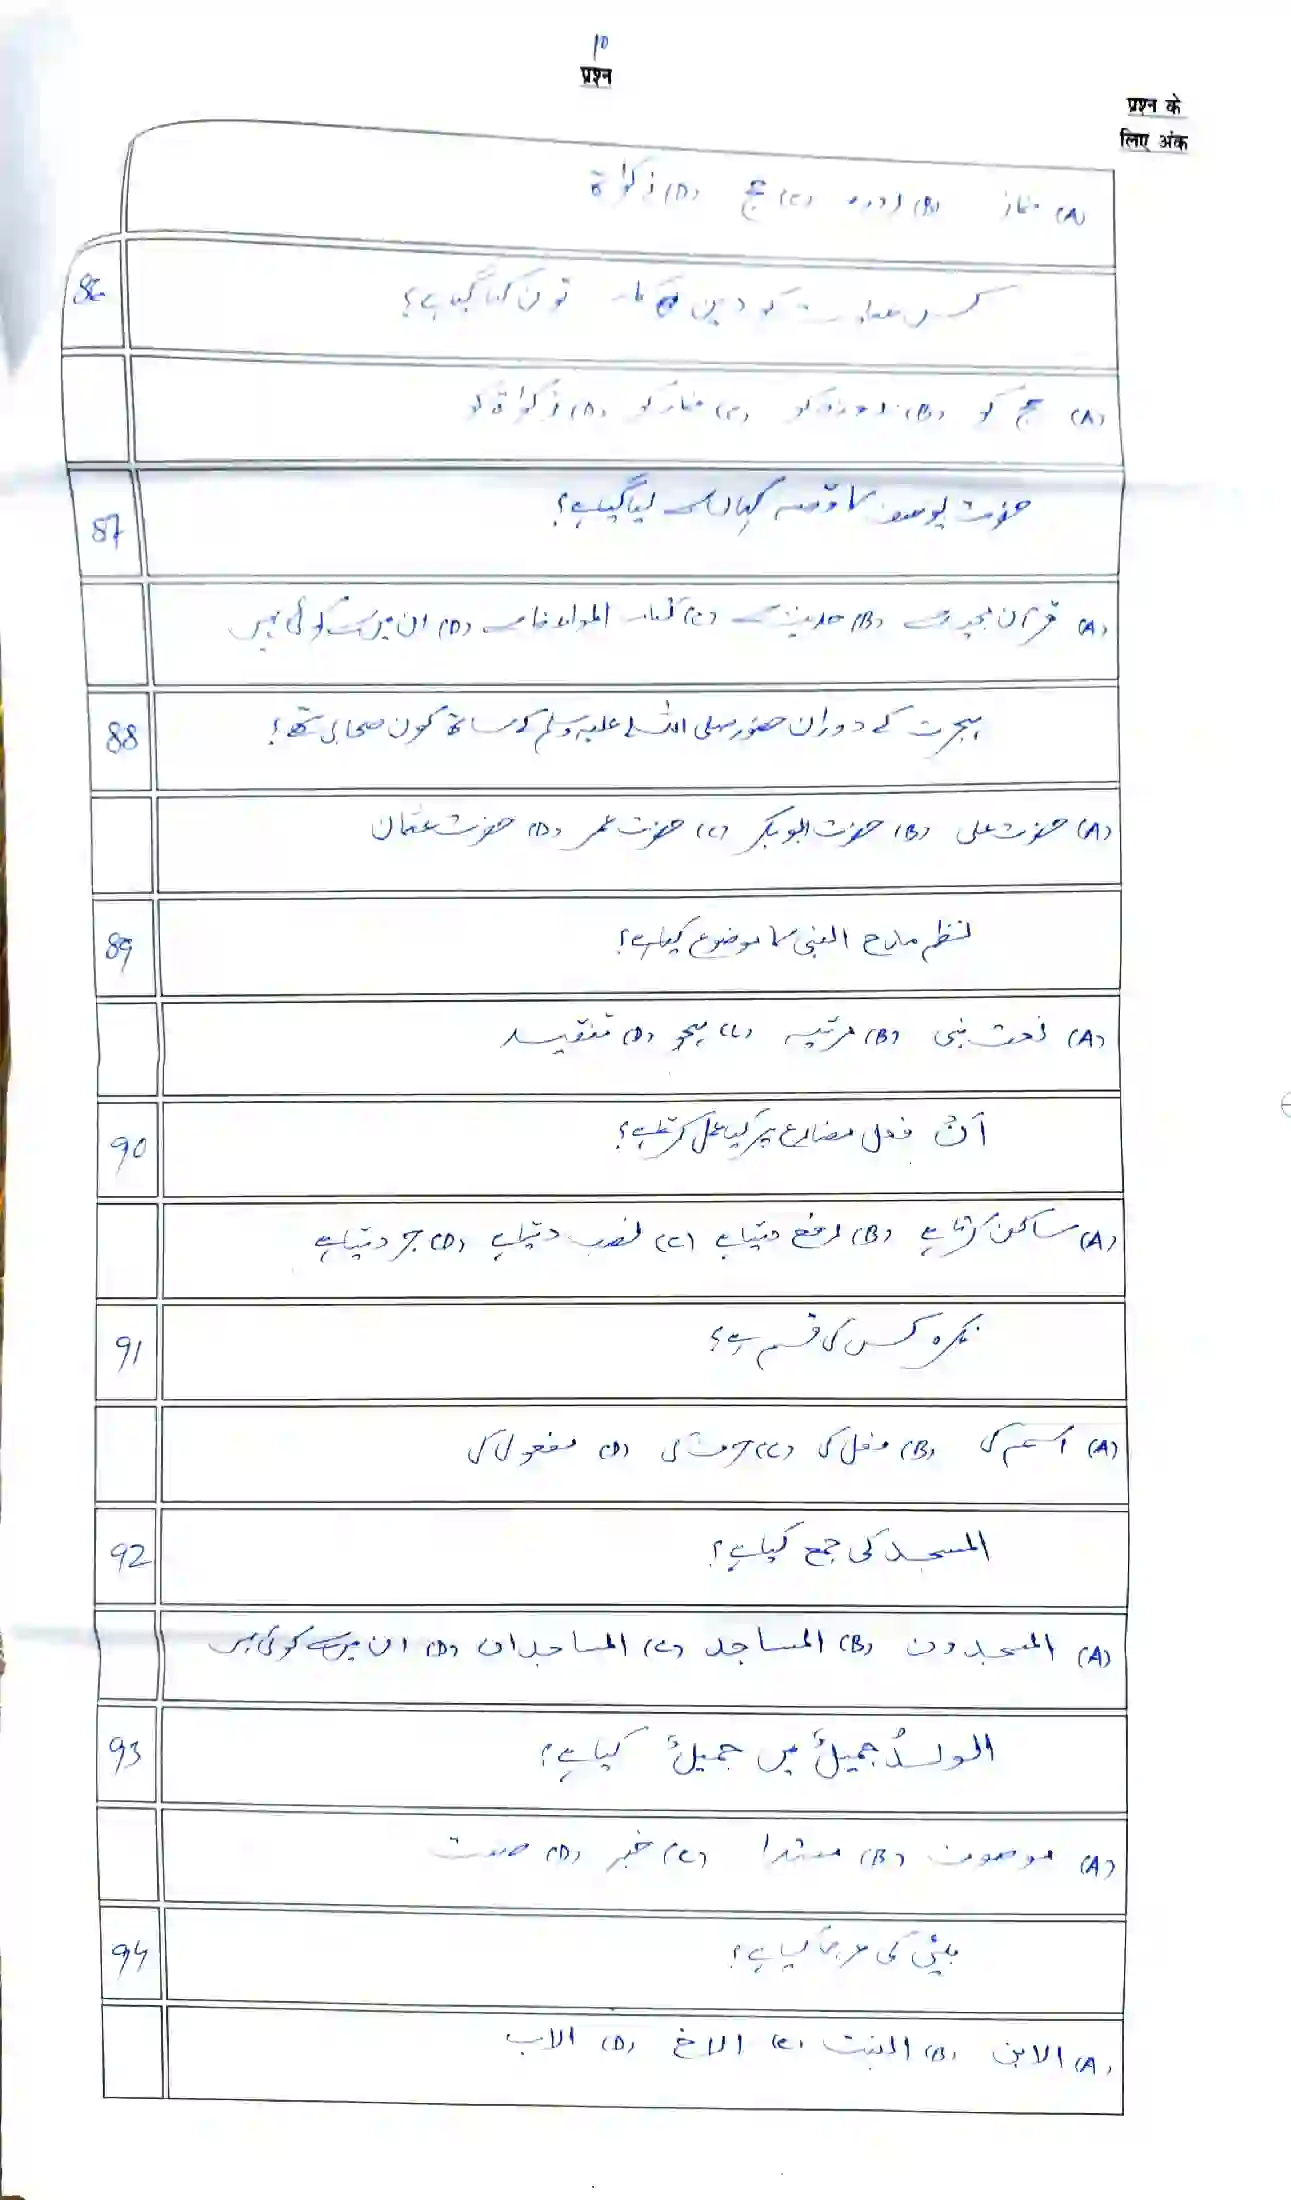 10
प्रश्न
प्रश्न के
लिए अंक
(A) نماز (B) روزہ (C) حج (D) زکوٰۃ
86 کس عبادت کو دین کا ستون کہا گیا ہے؟
(A) حج کو (B) روزہ کو (C) نماز کو (D) زکوٰۃ کو
87 حضرت یوسف کا قصہ کہاں سے لیا گیا ہے؟
(A) قرآن مجید سے (B) حدیث سے (C) کتاب سے (D) ان میں سے کوئی نہیں
88 ہجرت کے دوران حضور صلی اللہ علیہ وسلم کے ساتھ کون صحابی تھے؟
(A) حضرت علی (B) حضرت ابوبکر (C) حضرت عمر (D) حضرت عثمان
89 نظم مدح النبی کا موضوع کیا ہے؟
(A) نعت نبی (B) مرثیہ (C) ہجو (D) تنقید
90 اَنْ فعل مضارع پر کیا عمل کرتا ہے؟
(A) ساکن کرتا ہے (B) رفع دیتا ہے (C) نصب دیتا ہے (D) جر دیتا ہے
91 نکرہ کس کی قسم ہے؟
(A) اسم کی (B) فعل کی (C) حرف کی (D) مفعول کی
92 المسجد کی جمع کیا ہے؟
(A) المسجدون (B) المساجد (C) المساجدان (D) ان میں سے کوئی نہیں
93 الولدُ جمیلٌ میں جمیلٌ کیا ہے؟
(A) موصوف (B) مبتدا (C) خبر (D) صفت
94 بیٹی کی عربی کیا ہے؟
(A) الابن (B) البنت (C) الاخ (D) الاب